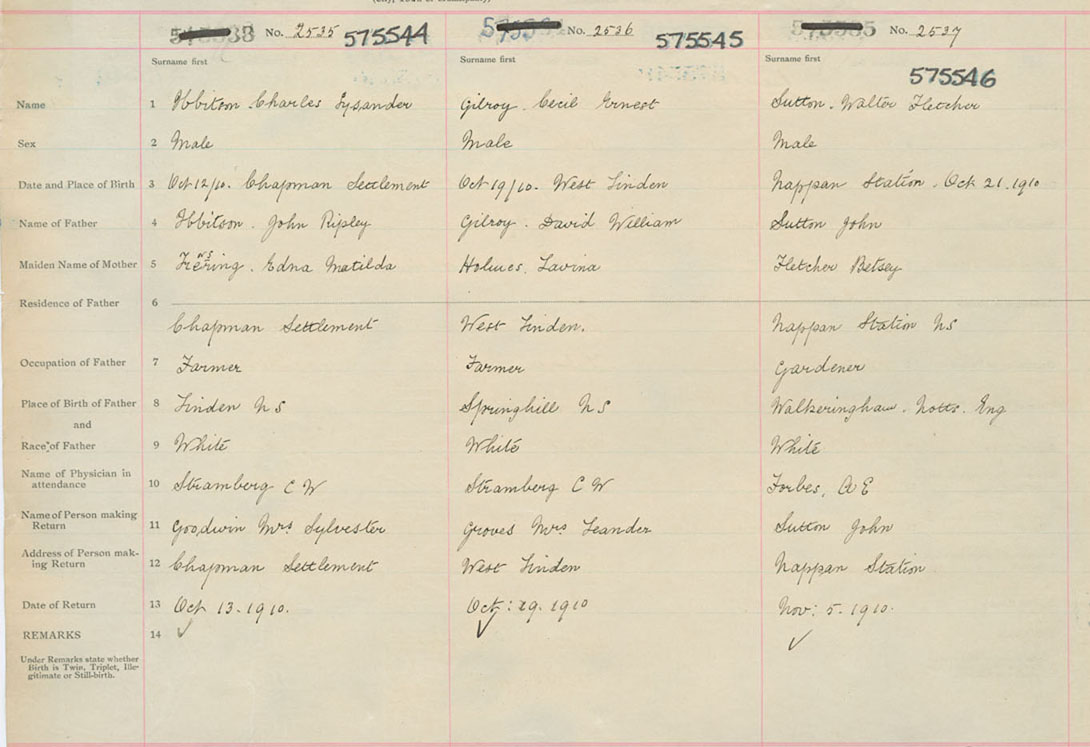 No. 2535 575544 No. 2536 575545 No. 2537
Surname first Surname first Surname first
575546
Name 1 Ibbitson Charles Lysander Gilroy Cecil Ernest Sutton Walter Fletcher
Sex 2 Male Male Male
Date and Place of Birth 3 Oct 12/10. Chapman Settlement Oct 19/10. West Linden Nappan Station. Oct 21. 1910
Name of Father 4 Ibbitson John Ripley Gilroy David William Sutton John
Maiden Name of Mother 5 Edna Matilda Holmes, Lavina Fletcher Betsey
Residence of Father 6
Chapman Settlement West Linden. Nappan Station NS
Occupation of Father 7 Farmer Farmer Gardener
Place of Birth of Father 8 Linden NS Springhill NS Walkeringham. Notts. Eng
and
Race of Father 9 White White White
Name of Physician in
attendance 10 Stramberg C W Stramberg C W Forbes, A E
Name of Person making
Return 11 Goodwin Mrs Sylvester Groves Mrs Leander Sutton John
Address of Person mak-
ing Return 12 Chapman Settlement West Linden Nappan Station
Date of Return 13 Oct 13. 1910. Oct: 29. 1910 Nov: 5. 1910.
REMARKS 14 ✓ ✓ ✓
Under Remarks state whether
Birth is Twin, Triplet, Ille-
gitimate or Still-birth.